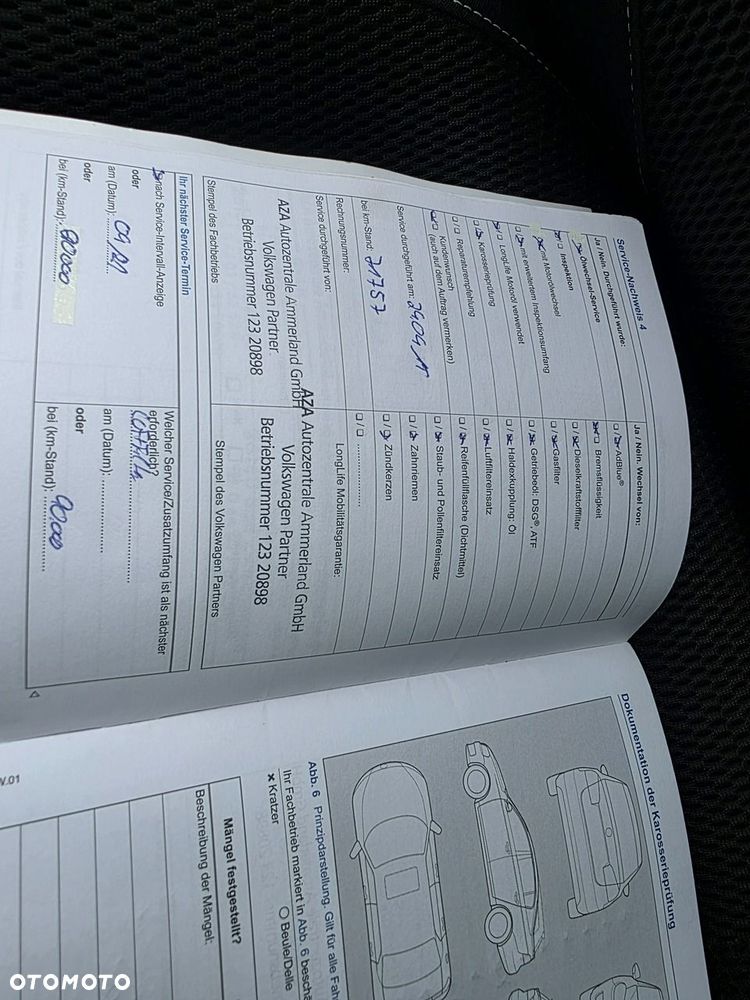 Service-Nachweis 4
Ja / Nein. Durchgeführt wurde:
Ölwechsel-Service
Inspektion
mit Motorölwechsel
mit erweitertem Inspektionsumfang
LongLife Motoröl verwendet
Karosserieprüfung
Reparaturempfehlung
Kundenwunsch
(auch auf dem Auftrag vermerken)
Service durchgeführt am:
bei km-Stand: 71757
Rechnungsnummer:
Service durchgeführt von:
AZA Autozentrale Ammerland GmbH
Volkswagen Partner.
Betriebsnummer 123 20898
Stempel des Fachbetriebs
Ja / Nein. Wechsel von:
AdBlue®
Bremsflüssigkeit
Dieselkraftstofffilter
Gasfilter
Getriebeöl: DSG®, ATF
Haldexkupplung: Öl
Luftfiltereinsatz
Reifenfüllflasche (Dichtmittel)
Staub- und Pollenfiltereinsatz
Zahnriemen
Zündkerzen
LongLife Mobilitätsgarantie:
AZA Autozentrale Ammerland GmbH
Volkswagen Partner
Betriebsnummer 123 20898
Stempel des Volkswagen Partners
Ihr nächster Service-Termin
nach Service-Intervall-Anzeige
oder
am (Datum):
oder
bei (km-Stand): 90000
Welcher Service/Zusatzumfang ist als nächster
erforderlich?
am (Datum):
oder
bei (km-Stand): 90000
Dokumentation der Karosserieprüfung
Abb. 6 Prinzipdarstellung. Gilt für alle
Ihr Fachbetrieb markiert in Abb. 6
× Kratzer
○ Beule/Delle
Mängel festgestellt?
Beschreibung der Mängel:
OTOMOTO